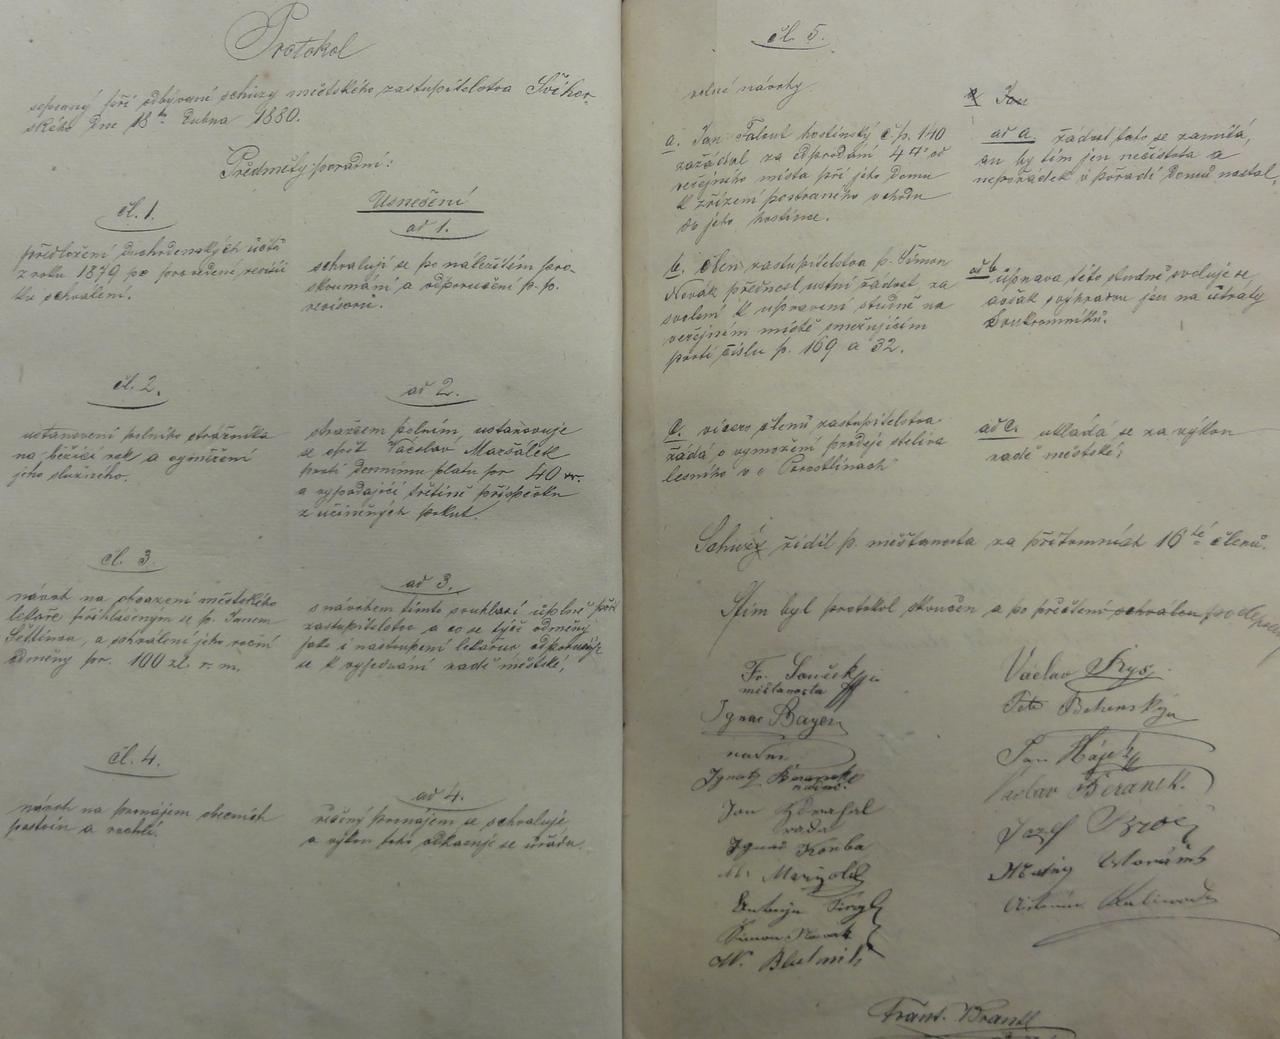 Protokol
sepsaný při odbývané schůzy městského zastupitelstva Švihov-
ského dne 18ho dubna 1880.
Předměty poradní:
čl. 1.
předložení duchodenských účtů
z roku 1879 po provedení revisí
ku schválení.
Usnešení
ad 1.
schvalují se po náležitém pro-
skoumání a odporučení p. p.
revisorů.
čl. 2.
ustanovení polního strážníka
na běžící rok a vyměření
jeho služného.
ad 2.
strážcem polním ustanovuje
se opět Václav Maršálek
proti dennímu platu pr 40 kr.
a vypadající třetině příspěvku
z učiněných pokut.
čl. 3
návrh na obsazení městského
lékaře přihlášeným se p. Janem
a schválení jeho roční
odměny pr. 100 zl. r. m.
ad 3.
s návrhem tímto souhlasí úplně
zastupitelstvo a co se týče odměny
jako i nastoupení lékařova odporučuje
se k vyjednání radě městské,
čl. 4.
návrh na pronájem obecních
pastvin a
ad 4.
řečený pronájem se schvaluje
a výkon toho odkazuje se úřadu.
čl. 5.
volné návrhy.
a. Jan Talent hostinský č p. 140
zažádal za odprodání 4 od
veřejného místa při jeho domu
k zřízení postraného vchodu
do jeho hostince.
ad a. žádost tato se zamítá,
an by tím jen nečistota a
nepořádek v pořadí domů nastal,
b. člen zastupitelstva p. Šimon
Novák přednesl ustní žádost, za
svolení k upravení studně na
veřejném místě směřujícím
proti číslu p. 169 a 32.
ad b úprava této studně svoluje se
avšak s výhradou jen na útraty
soukromníků.
c. vícero členů zastupitelstva
žádá o vymožení prodeje steliva
lesního v
ad c. ukládá se za výkon
radě městské;
Schuzy řídil p. měšťanosta za přítomních 16té členů.
Stím byl protokol skončen a po přečtení schválen podepsán
Fr. Souček
měšťanosta
Ignac Bayer
radní
Ignatz Beranek
radní
Jan
rada
Ignac Korba
M. Marzold
Antonín
Šimon Novák
W.
Václav Krys
Petr
Jan Hájek
Václav Beránek
Josef Brož
Matěj
Antonín
Frant. Brantl